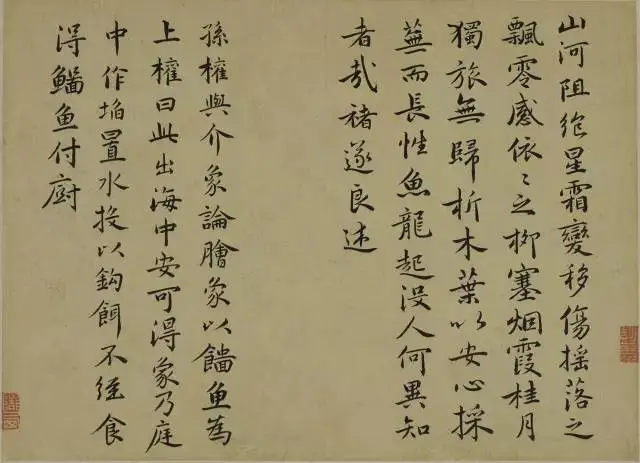 山河阻绝星霜變移傷摇落之
飄零感依〻之柳塞烟霞桂月
獨旅無歸析木葉以安心採
蕪而長性魚龍起没人何異知
者哉褚遂良述
孫權與介象論膾象以鯔魚為
上權曰此出海中安可得象乃庭
中作埳置水投以鈎餌不經食
得鯔魚付廚